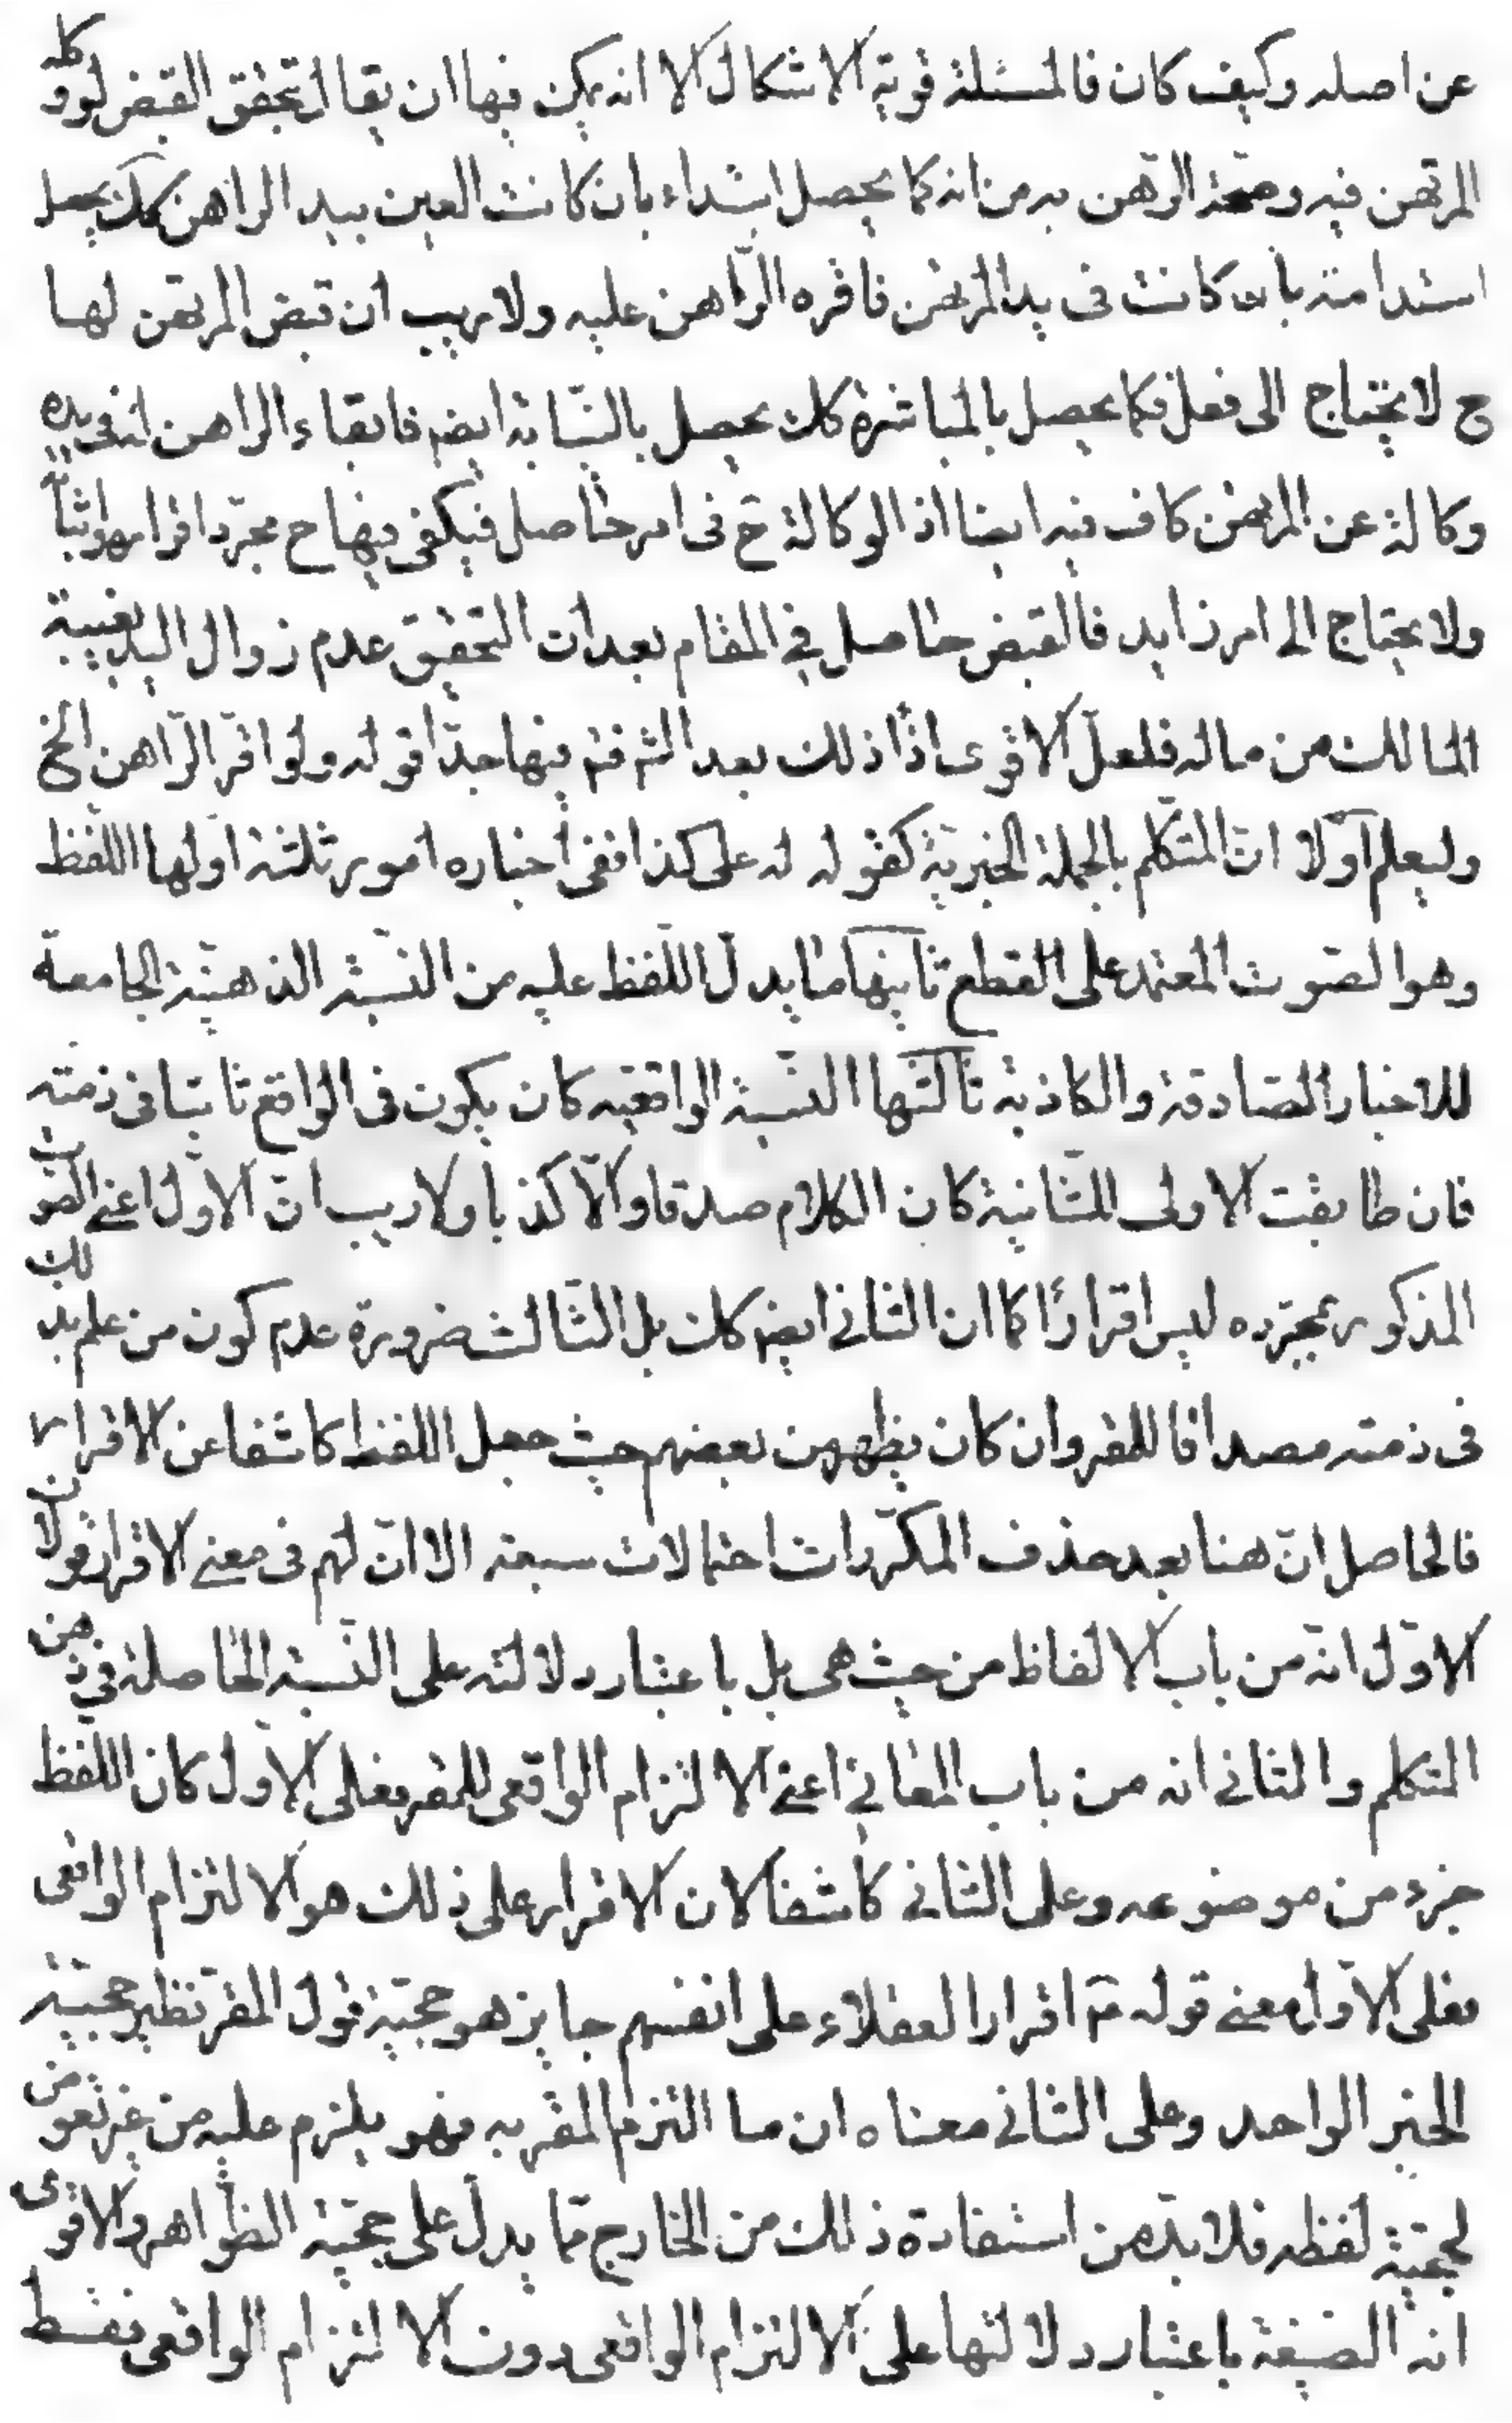 عن اصله وكيف كان فالمسئلة قوية الاشكال الا انه يمكن فيها ان يقال بتحقق القبض لو وكله
المرتهن فيه وصحة الرهن به من انه كما يحصل ابتداء بان كانت العين بيد الراهن كك يحصل
استدامة بان كانت فى يد المرتهن فاقره الراهن عليه ولا ريب ان قبض المرتهن لها
ح لا يحتاج الى فعل فكما يحصل بالمباشرة كك يحصل بالنيابة ايضم فابقاء الراهن لنفى يده
وكالة عن المرتهن كاف فيه ايضا اذ الوكالة ح فى امر حاصل فيكفى فيها ح مجرد اقرارهما
ولا يحتاج الى امر زايد فالقبض حاصل فى المقام بعد ان التحقيق عدم زوال اليد بغيبة
المالك من ماله فلعل الاقوى اذا ذلك بعد الثم فتم فيها جدا قوله ولو اقر الراهن الخ
وليعلم اولا ان المتكلم بالجملة الخبرية كقوله له على كذا ففى اخباره امور ثلثة اولها اللفظ
وهو الصوت المعتمد على القطع ثانيها ما يدل اللفظ عليه من النسبة الذهنية الجامعة
للاخبار الصادقة والكاذبة ثالثها النسبة الواقعيه كان يكون فى الواقع ثابتا فى ذمته
فان طابقت الاولى للثانية كان الكلام صدقا والا كذبا ولا ريب ان الاول اعنى الصوت
المذكور بمجرده ليس اقرارا كما ان الثانى ايضم كك بل الثالث ضرورة عدم كون من علم بذلك
فى ذمته مصداقا للمقر وان كان يظهر من بعضهم حيث جعل اللفظ كاشفا عن الاقرار
فالحاصل ان هنا بعد حذف المكررات احتمالات سبعة الا ان لهم فى معنى الاقرار قولان
الاول انه من باب الالفاظ من حيث هى بل باعتبار دلالته على النسبة الحاصلة فى ذهن
المتكلم والثانى انه من باب المعانى اعنى الالتزام الواقعى للمقر فعلى الاول كان اللفظ
جزء من موضوعه وعلى الثانى كاشفا لان الاقرار على ذلك هو الالتزام الواقعى
فعلى الاول معنى قوله ع اقرار العقلاء على انفسهم جايز هو حجية قول المقر نظير حجية
الخبر الواحد وعلى الثانى معناه ان ما التزم المقر به فهو يلزم عليه من غير تعرض
لحجية لفظه فلا بد من استفادة ذلك من الخارج مما يدل على حجية الظواهر والاقوى
انه الصيغة باعتبار دلالتها على الالتزام الواقعى دون الالتزام الواقعى فقط